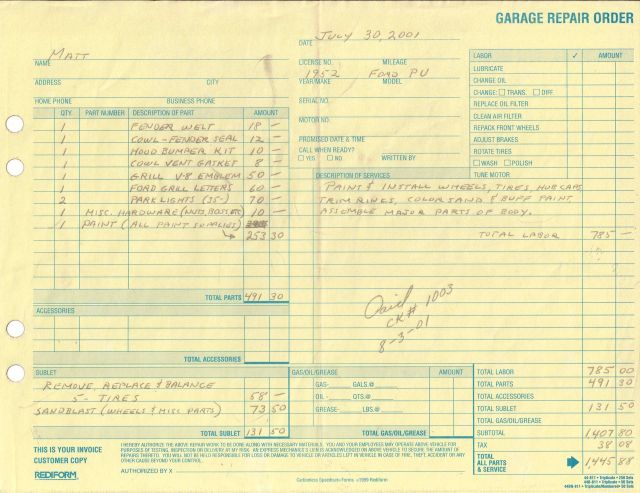 GARAGE REPAIR ORDER
DATE July 30, 2001
NAME Matt
ADDRESS CITY
HOME PHONE BUSINESS PHONE
LICENSE NO. MILEAGE
1952 Ford PU
YEAR/MAKE MODEL
SERIAL NO.
MOTOR NO.
PROMISED DATE & TIME
CALL WHEN READY?
YES NO WRITTEN BY
LABOR ✓ AMOUNT
LUBRICATE
CHANGE OIL
CHANGE: TRANS. DIFF.
REPLACE OIL FILTER
CLEAN AIR FILTER
REPACK FRONT WHEELS
ADJUST BRAKES
ROTATE TIRES
WASH POLISH
TUNE MOTOR
QTY. PART NUMBER DESCRIPTION OF PART AMOUNT
1 FENDER WELT 18 —
1 COWL-FENDER SEAL 12 —
1 HOOD BUMPER KIT 10 —
1 COWL VENT GASKET 8 —
1 GRILL V-8 EMBLEM 50 —
1 FORD GRILL LETTERS 60 —
2 PARK LIGHTS (35-) 70 —
1 MISC. HARDWARE (NUTS, BOLTS, ETC) 10 —
1 PAINT (ALL PAINT SUPPLIES)
253 30
TOTAL PARTS 491 30
DESCRIPTION OF SERVICES
PAINT & INSTALL WHEELS, TIRES, HUBCAPS
TRIM RINGS, COLORSAND & BUFF PAINT
ASSEMBLE MAJOR PARTS OF BODY.
TOTAL LABOR 785 —
Paid
CK# 1003
8-3-01
ACCESSORIES
TOTAL ACCESSORIES
SUBLET
REMOVE, REPLACE & BALANCE
5- TIRES 58 —
SANDBLAST (WHEELS & MISC PARTS) 73 50
TOTAL SUBLET 131 50
GAS/OIL/GREASE AMOUNT
GAS- GALS.@
OIL - QTS.@
GREASE- LBS.@
TOTAL GAS/OIL/GREASE
TOTAL LABOR 785 00
TOTAL PARTS 491 30
TOTAL ACCESSORIES
TOTAL SUBLET 131 50
SUBTOTAL 1407 80
TAX 38 08
TOTAL ALL PARTS & SERVICE 1445 88
THIS IS YOUR INVOICE
CUSTOMER COPY
REDIFORM
I HEREBY AUTHORIZE THE ABOVE REPAIR WORK TO BE DONE ALONG WITH NECESSARY MATERIALS. YOU AND YOUR EMPLOYEES MAY OPERATE ABOVE VEHICLE FOR
PURPOSES OF TESTING, INSPECTION OR DELIVERY AT MY RISK. AN EXPRESS MECHANIC'S LIEN IS ACKNOWLEDGED ON ABOVE VEHICLE TO SECURE THE AMOUNT OF
REPAIRS THERETO. YOU WILL NOT BE HELD RESPONSIBLE FOR LOSS OR DAMAGE TO VEHICLE OR ARTICLES LEFT IN VEHICLE IN CASE OF FIRE, THEFT, ACCIDENT OR ANY
OTHER CAUSE BEYOND YOUR CONTROL.
AUTHORIZED BY X
Carbonless Speediset® Forms ©1999 Rediform